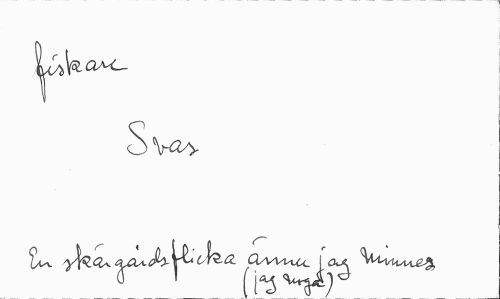 fiskare
Svas
En skärgårdsflicka ännu jag minnes
(jag unga)